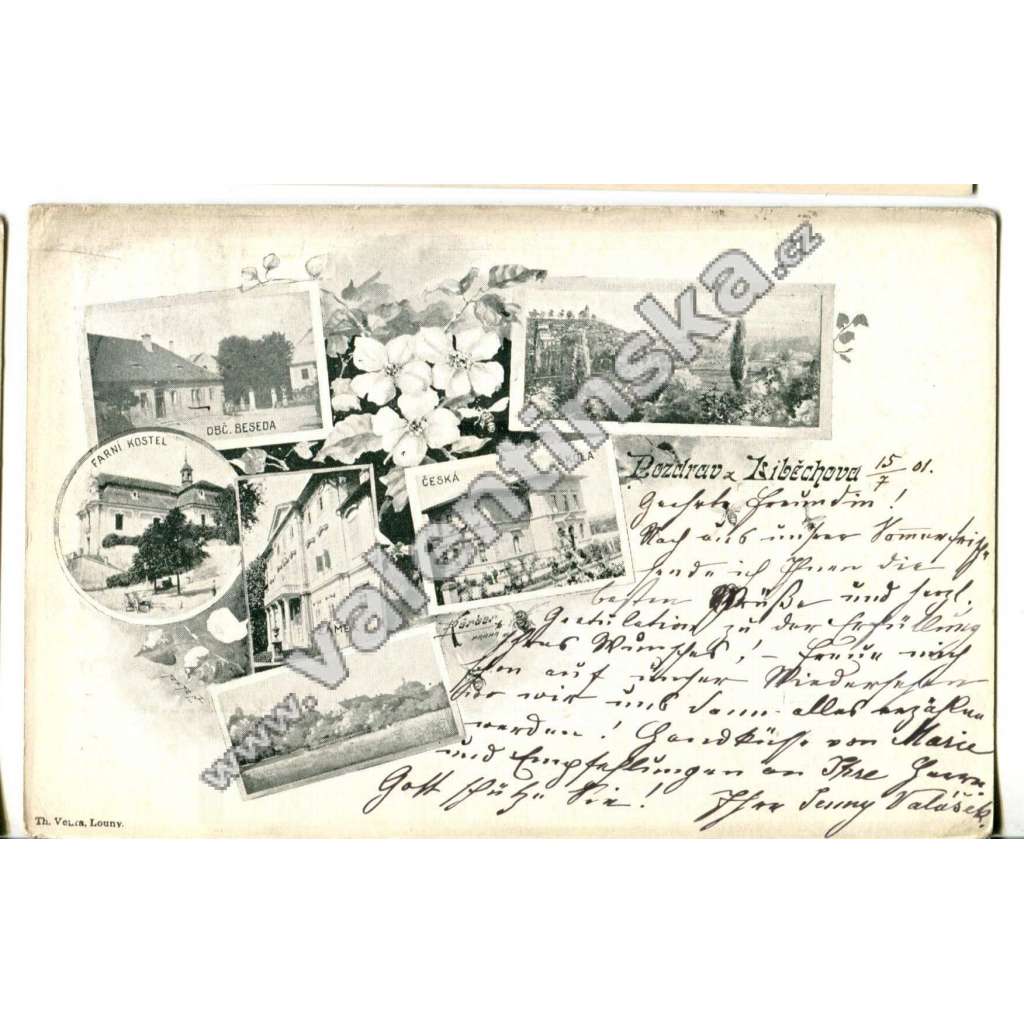 OBČ. BESEDA
FARNÍ KOSTEL
ČESKÁ
Pozdrav z Liběchova 15/7 01.
Geehrte Freundin!
Nach aus unsrer Sommerfrische
sende ich Ihnen die
besten Grüße und herzl.
Gratulation zu der Erfüllung
Ihres Wunsches! – Freue mich
schon auf unser Wiedersehen
wo wir uns dann alles erzählen
werden! Handküsse von Marie
und Empfehlungen an Ihre Herrn
Gott schütz Sie! Ihre Jenny Valášek.
Th. Louny.
www.valentinska.cz